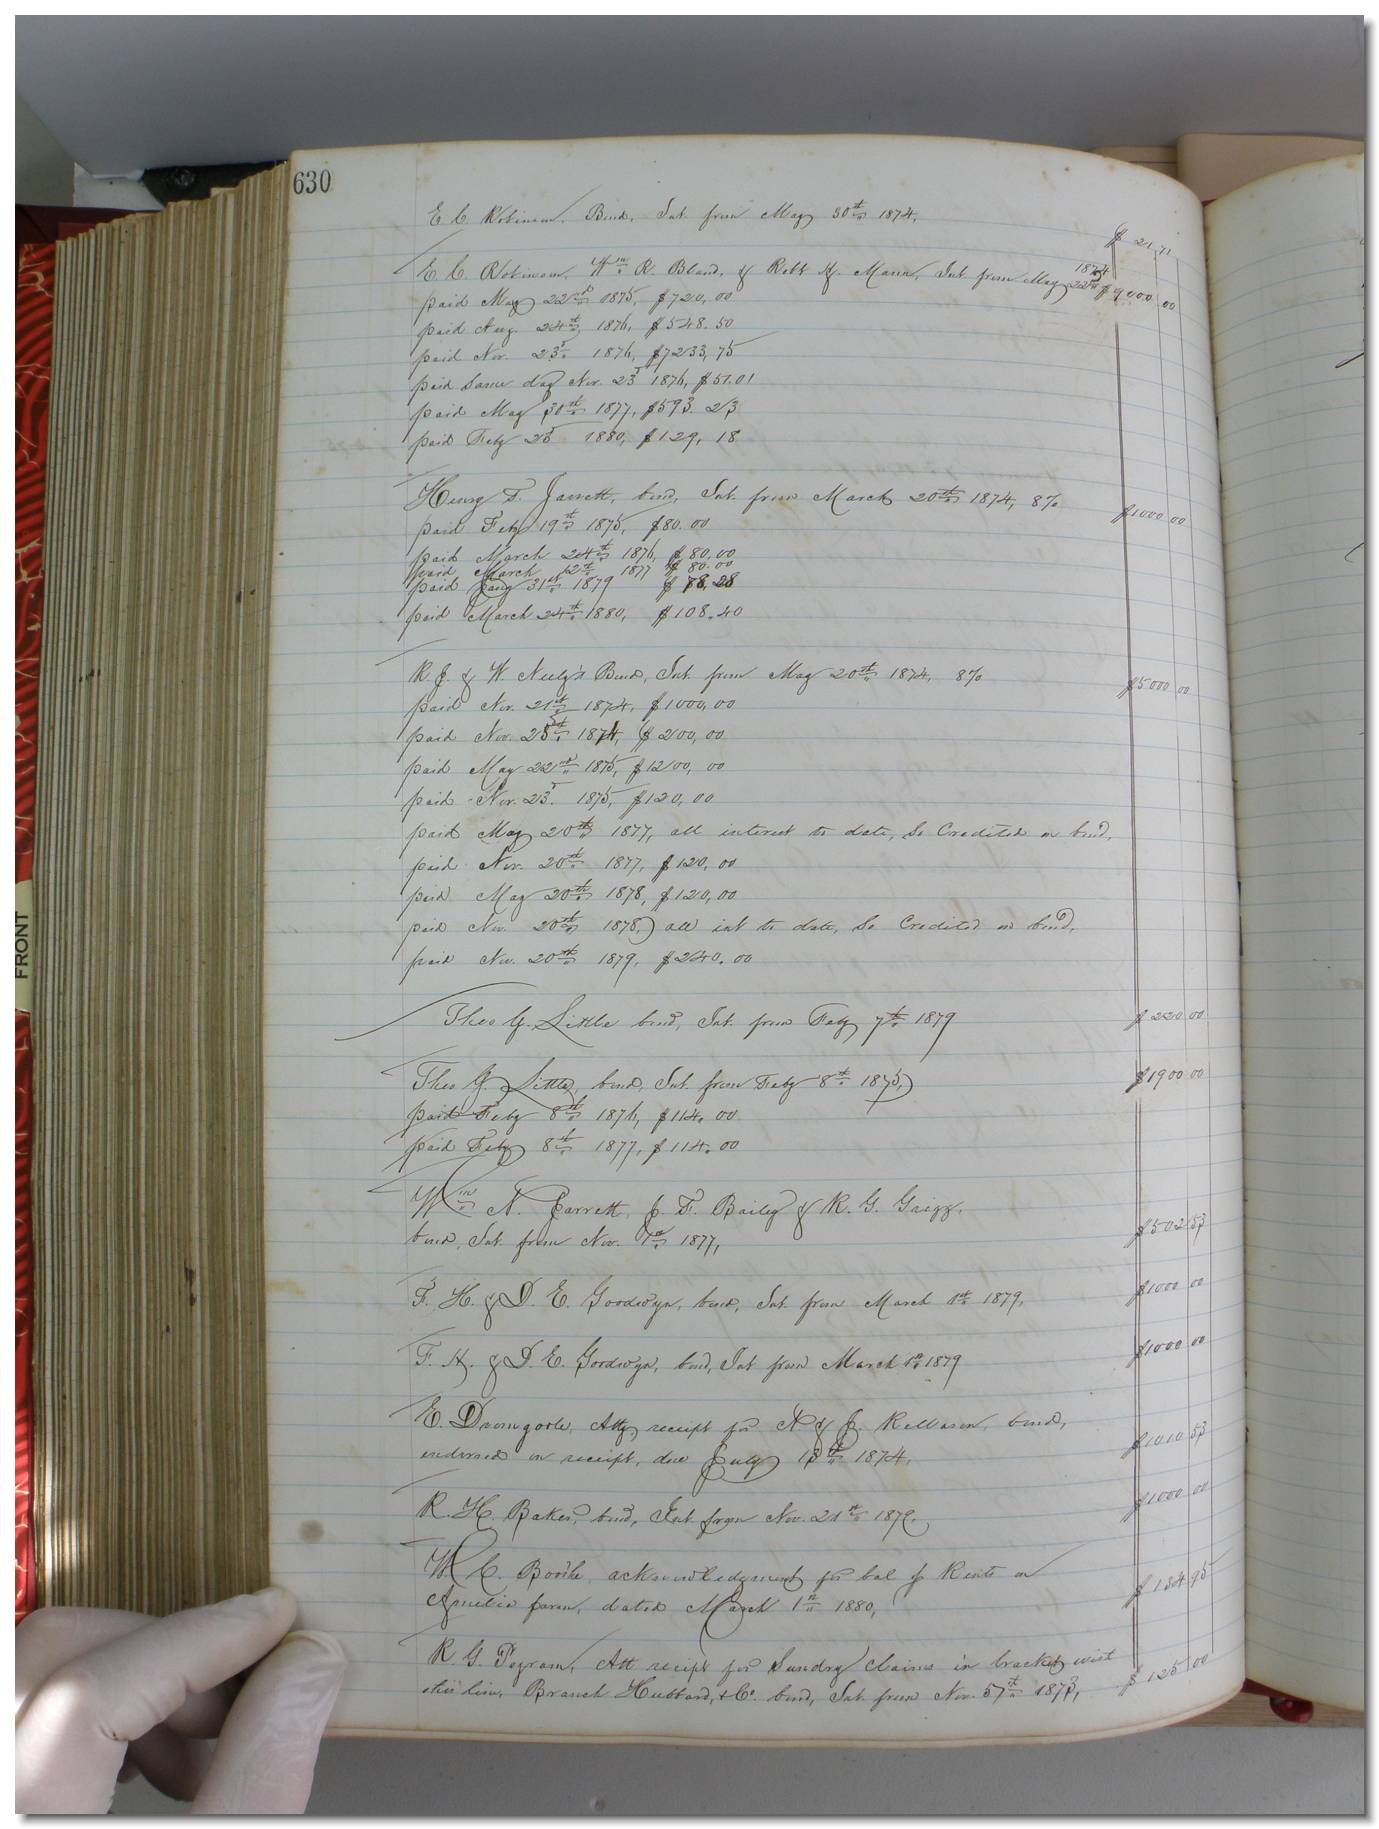 630
E. C. Robinson, Bond, Int. from May 30th 1874, $ 21.71
E. C. Robinson, Wm R. Bland, & Robt H. Mann, Int. from May 22nd 1874 $9000 00
paid May 22nd 1875, $720,00
paid Aug. 24th 1876, $548.50
paid Nov. 23d 1876, $7233,75
paid same day Nov. 23d 1876, $51.01
paid May 30th 1877, $593.23
paid Feby 25 1880, $129, 18
Henry T. Jarrett, bond, Int. from March 20th 1874, 8% $1000 00
paid Feby 19th 1875, $80.00
paid March 24th 1876, $80.00
paid March 12th 1877 $80.00
paid Jany 31st 1879 $78,28
paid March 24th 1880, $108.40
R. J. & W. Neely's Bond, Int. from May 20th 1874, 8% $5000 00
paid Nov. 21st 1874, $1000,00
paid Nov. 25th 1874, $200,00
paid May 22nd 1875, $1200, 00
paid Nov. 23d 1875, $120,00
paid May 20th 1877, all interest to date, So Credited on bond,
paid Nov. 20th 1877, $120,00
paid May 20th 1878, $120,00
paid Nov. 20th 1878, all int to date, So Credited on bond,
paid Nov. 20th 1879, $240.00
Theo G. Little bond, Int. from Feby 7th 1879 $220 00
Theo G. Little, bond, Int. from Feby 8th 1875, $1900 00
paid Feby 8th 1876, $114.00
paid Feby 8th 1877, $114.00
Wm N. Jarrett, J. F. Bailey & R. G. Grigg,
bond, Int. from Nov. 1st 1877, $502 53
F. H. & D. E. Goodwyn, bond, Int. from March 1st 1879, $1000 00
F. H. & D. E. Goodwyn, bond, Int from March 1st 1879 $1000 00
E. Dromgoole, Atty receipt for N. & J. Rollason, bond,
endorsed on receipt, due July 13th 1874, $1010 53
R. H. Baker, bond, Int. from Nov. 21st 1879, $1000 00
W. C. Boothe, acknowledgment for bal of Rents on
Amelia farm, dated March 1st 1880, $134 95
R. G. Pegram, Att receipt for Sundry claims in bracket
this line, Branch Hubbard, & Co. bond, Int. from Nov. 5th 1873, $125 00
FRONT